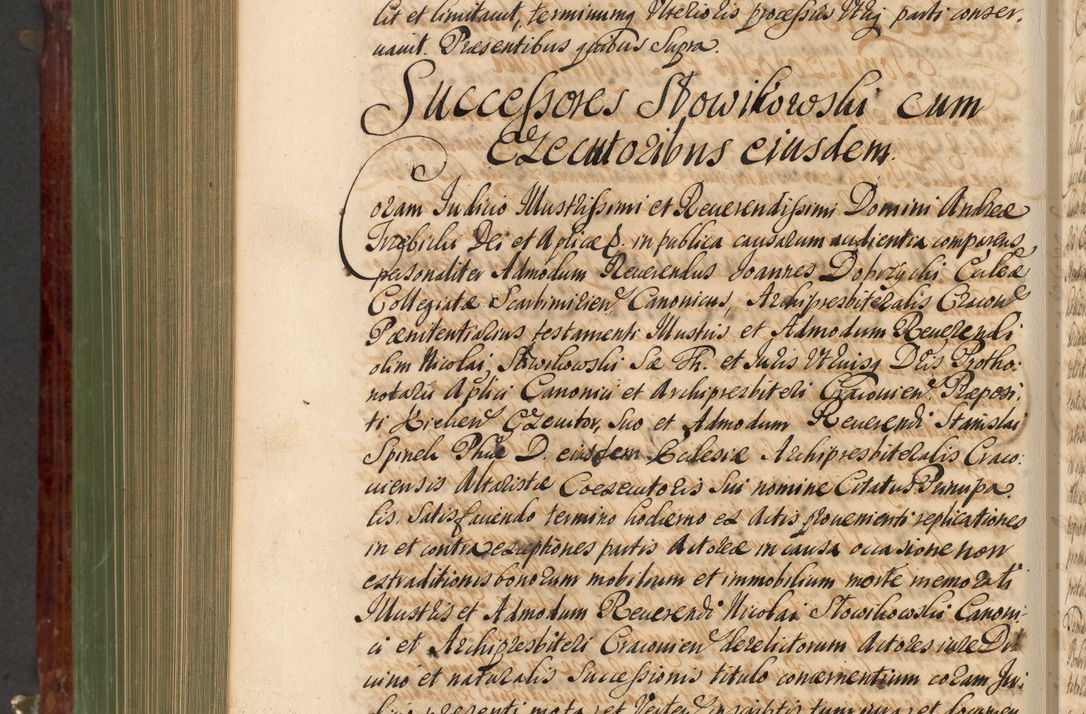 cit et limitavit, terminumq Ulterioris processus Utriq parti conser,
vavit. Præsentibus quibus Supra.
Successores Słowikowski cum
Executoribus eiusdem.
Coram Iudicio Illustrissimi et Reverendissimi Domini Andreæ
Trzebicki Dei et Aplicæ S. in publica causarum audientia comparens
personaliter Admodum Reverendus Joannes Dobrzycki Eccleæ
Collegiatæ Scarbimirien Canonicus, Archipresbiteralis Cracow
Pœnitentiarius testamenti Illustris et Admodum Reverendi
olim Nicolai Słowikowski Sæ Th. et Iuris Utriusq Dris Protho:
notarii Aplici Canonici et Archipresbiteri Cracovien Præposi,
ti Kielcen Executor, Suo et Admodum Reverendi Stanislai
Spinek Phiæ D. eiusdem Ecclesiæ Archipresbiteralis Craco:
viensis Altaristæ Coexecutoris Sui nomine Citatus Principa
lis. Satisfaciendo termino hodierno ex Actis provenienti replicationes
in et contra exceptiones partis Actoreæ in causa occasione non
extraditionis bonorum mobilium et immobilium morte memorati
Illustris et Admodum Reverendi Nicolai Słowikowski Canoni,
ci et Archipresbiteri Cracovien derelictorum Actores iure Di
vino et naturalis Successionis titulo concernentium coram Iu,
dicio præsenti mota, et